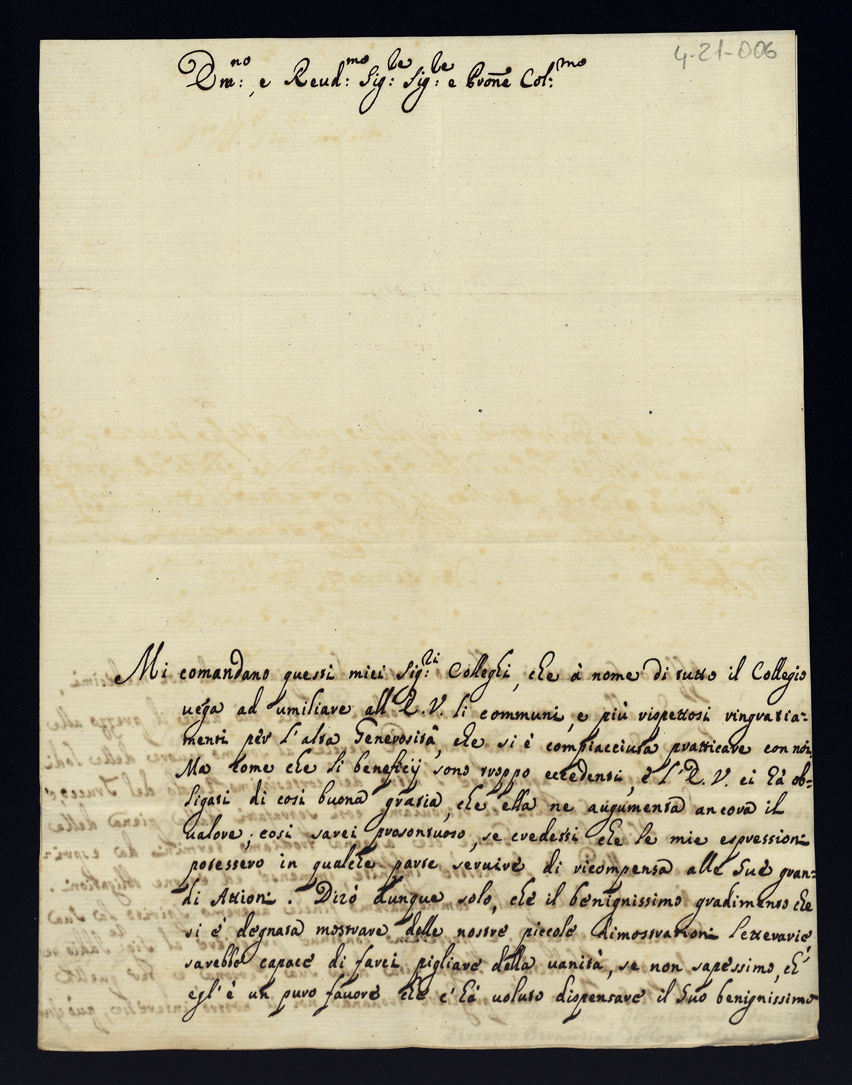 4-21-006
Dmo: e Revd:mo Sig:re Sig:re e Prone Col:mo
Mi comandano questi miei Sig:ri Colleghi, che à nome di tutto il Collegio
uega ad umiliare all' R. V. li communi, e più rispettosi ringratia-
menti pèr l'alta Generosità, che si è compiacciuta pratticare con noi.
Ma come che li beneficij sono troppo eccedenti, e l'R. V. ci hà ob-
ligati di cosi buona gratia, che ella ne augumenta ancora il
ualore; cosi sarei prosontuoso, se credessi che le mie espressioni
potessero in qualche parte seruire di ricompensa alle Sue gran-
di Attioni. Dirò dunque solo, che il benignissimo gradimento che
si è degnata mostrare delle nostre piccole dimostrationi letterarie
sarebbe capace di farci pigliare della uanità, se non sapessimo, ch'
egl'è un puro fauore che c'hà uoluto dispensare il Suo benignissimo